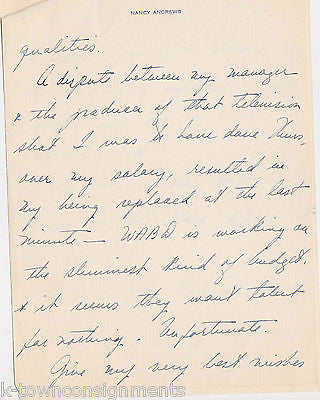 NANCY ANDREWS
qualities.
A dispute between my manager
& the producer of that television
show I was to have done Thurs.
over my salary, resulted in
my being replaced at the last
minute — WABD is working on
the slimmest kind of budget
& it seems they want talent
for nothing. Unfortunate.
Give my very best wishes
k-townconsignments